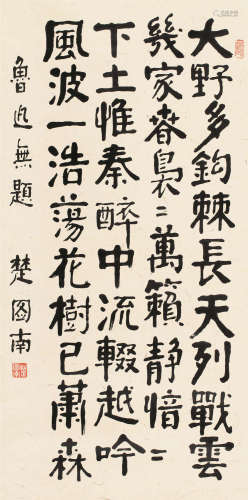 大野多鈎棘長天列戰雲
幾家春裊〻萬籟靜愔〻
下土惟秦醉中流輟越吟
風波一浩蕩花樹已蕭森
魯迅無題 楚圖南